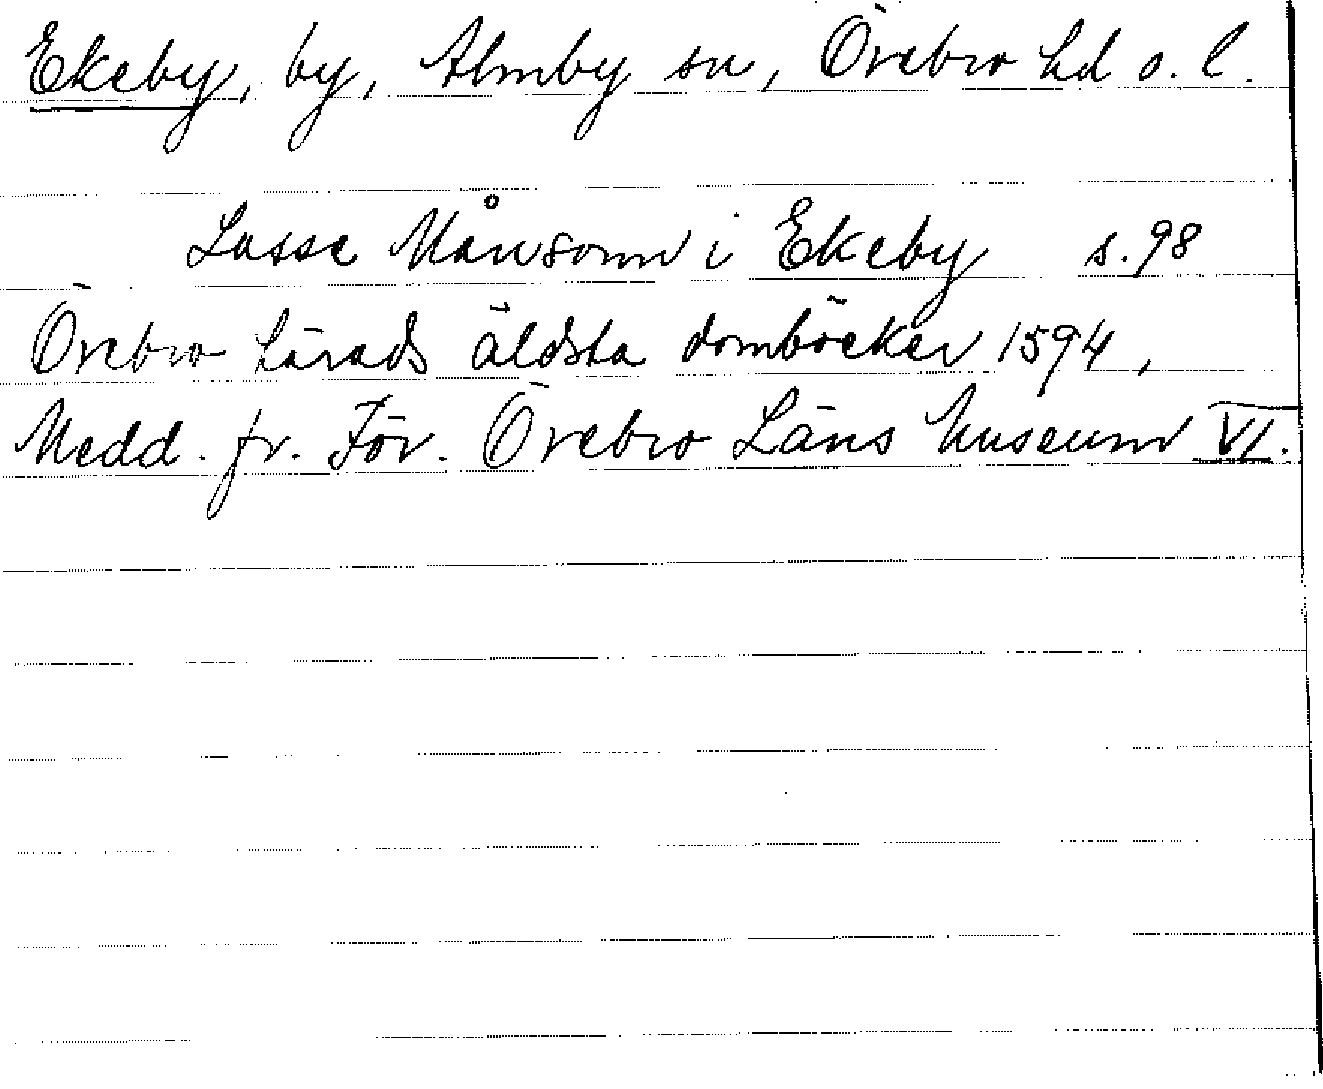 Ekeby, by, Almby sn, Örebro hd o. l.
Lasse Månsonn i Ekeby s. 98
Örebro härads äldsta domböcker 1594,
Medd. fr. För. Örebro Läns Museum VI.